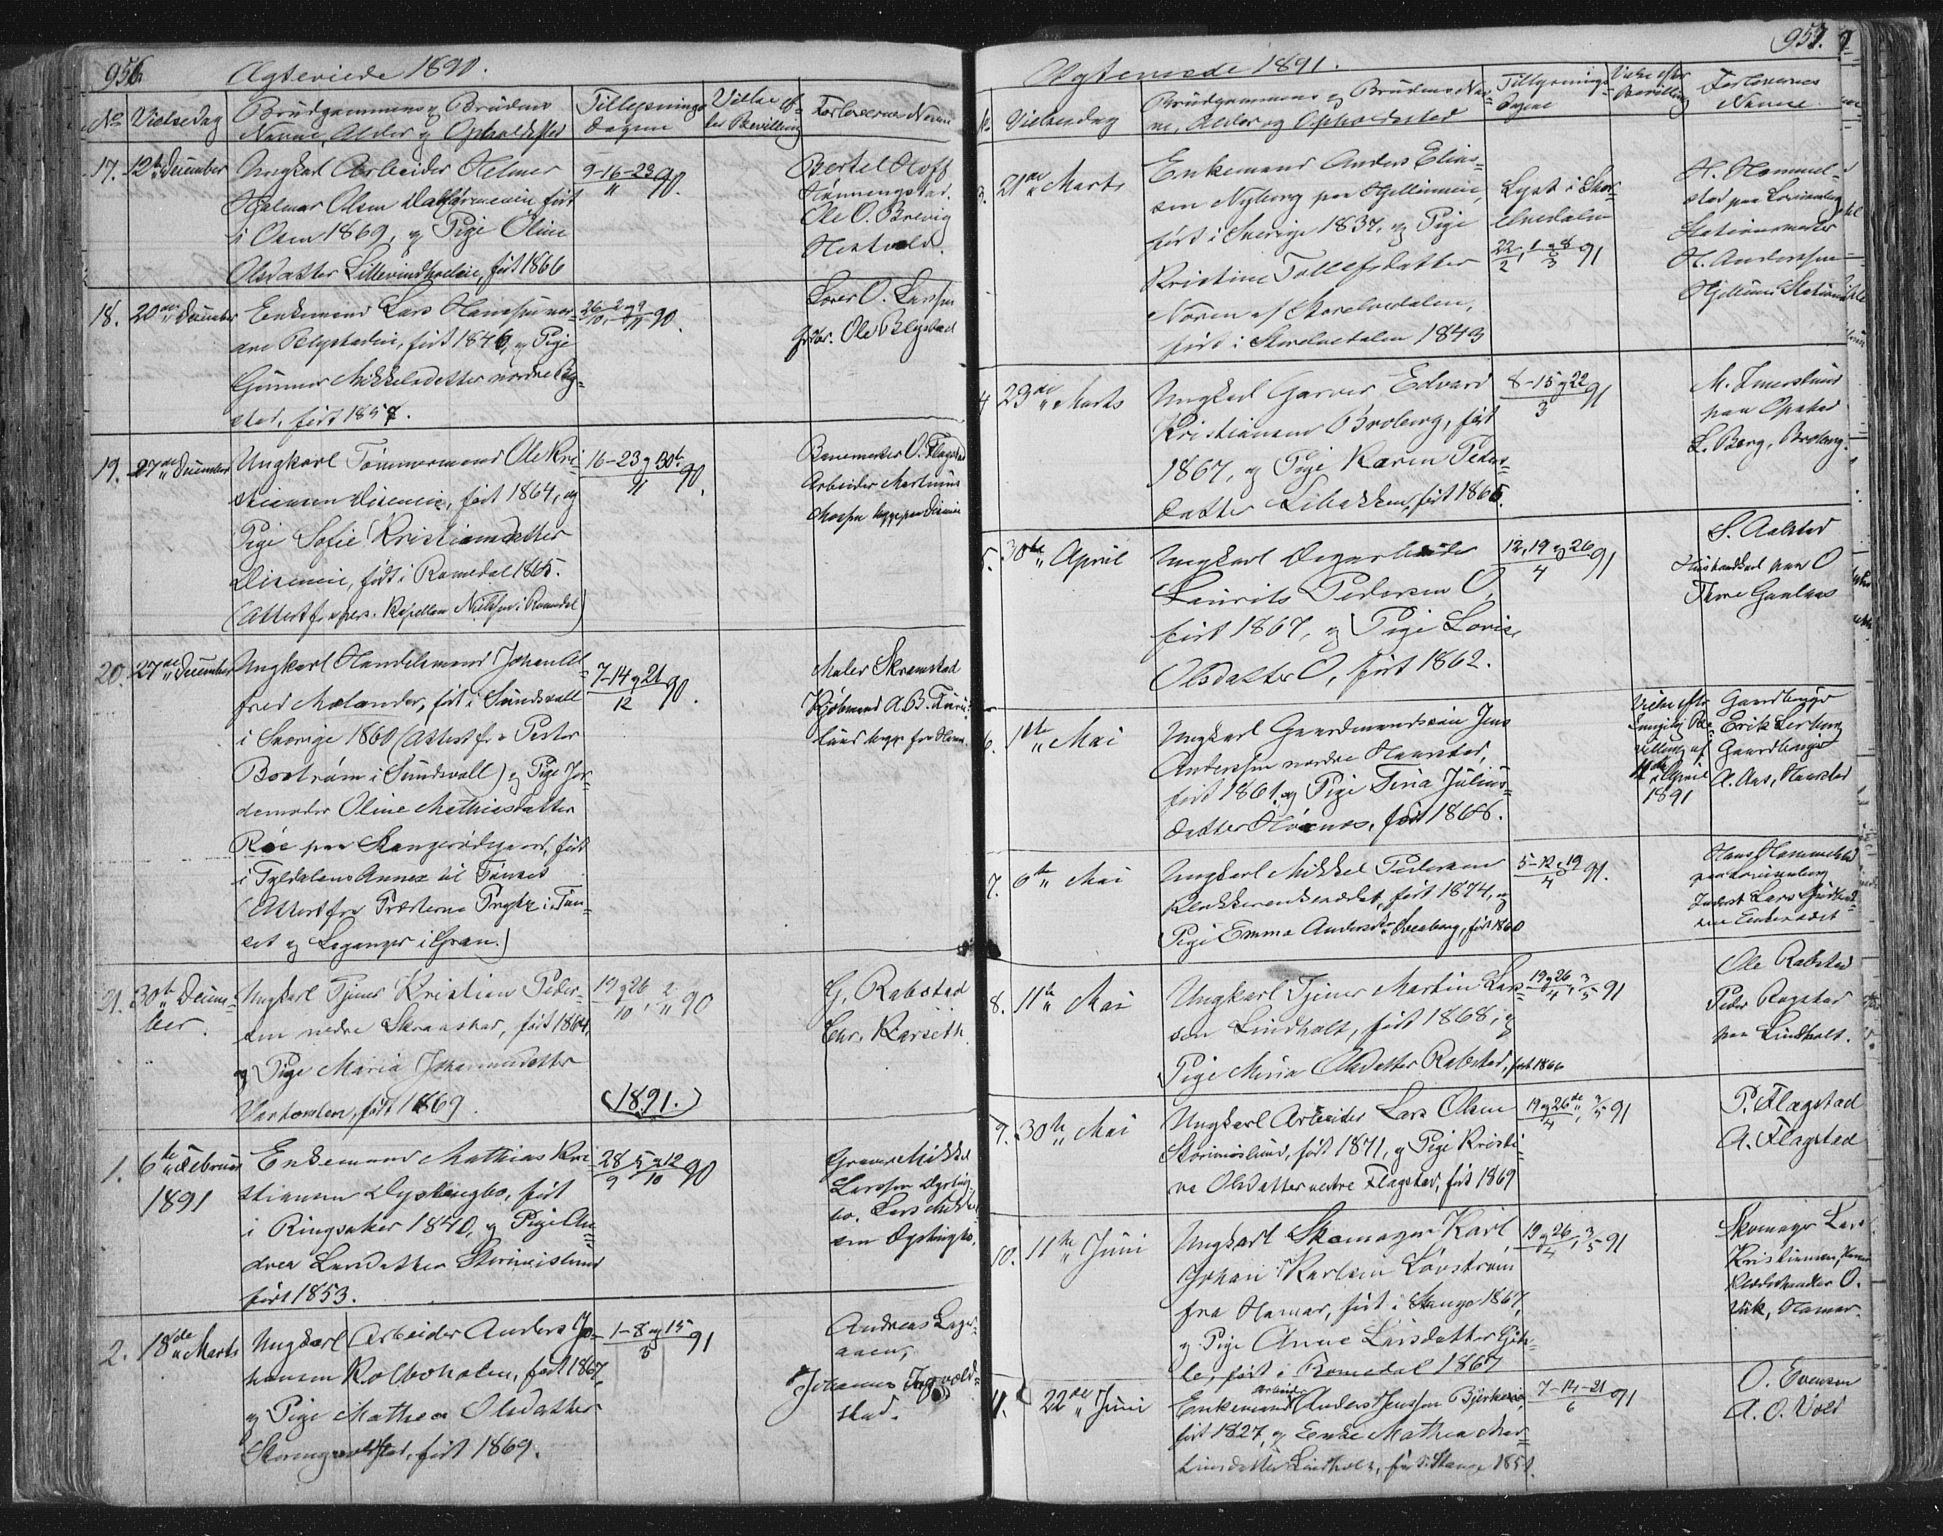 956
Ægteviede 1890.
No
Vielsedag
Brudgommens og Brudens
Navne, Alder og Opholdssted
Tillysnings
dagene
Vielse ef-
ter Bevilling
Forlovernes Navne
17. 12te December
Ungkarl Arbeider Helmer
Hjalmar Olsen
født
i Osen 1869, og Pige Oline
Olsdatter Lillevindholeie, født 1866
9-16-23/11 90.
Bertel Hoff
Ole O. Brevig
18. 20de December
Enkemand Lars Hanssen nor-
dre Blystadeie, født 1846, og Pige
Gunnor Mikkelsdatter nordre Bly-
stad, født 1857.
26/10, 2 og 9/11 90.
Lærer O. Larssen
Gbr. Ole Blystad
19. 27de December
Ungkarl Tømmermand Ole Kri-
stiansen Diseneie, født 1864, og
Pige Sofie Kristiansdatter
Diseneie, født i Romedal 1865.
(Attest fra pers. Kapellan Nielsen i Romedal)
16-23 og 30te/11 90.
Banemester O. Flagstad
Arbeider Martinius
begge paa Disen
20. 27de December
Ungkarl Handelsmand Johan Al-
fred Melander, født i Sundsvall
i Sverige 1860 (Attest fra Pastor
Bostrøm i Sundsvall) og Pige Jor-
demoder Oline Mathiesdatter
Røe paa Stangerødegaard, født
i Tyldalens Annex til Tønset
(Attest fra Præsterne Prytz i Tøn-
set og Leganger i Gran.)
7-14 og 21/12 90.
Maler Skramstad
Kjøbmand A. B. Furu-
lund begge fra Hamar.
21. 30te Decem-
ber.
Ungkarl Tjener Kristian Peder-
sen nedre Skraastad, født 1864,
og Pige Maria Johannesdatter
Vartomten, født 1869.
19 og 26/10, 2/11 90
G. Rabstad
Chr. Karset
(1891.)
1. 6te Februar
1891
Enkemand Mathias Kri-
stiansen Dystingbo, født
i Ringsaker 1840, og Pige An-
drea Larsdatter Storimislund
født 1853.
28/9, 5 og 12/10 90
Graver Mikkel
Larssen Dysting-
bo. Lars Mikkel-
sen Dystingbo.
2. 18de Marts
Ungkarl Arbeider Anders Jo-
hansen Kolboholen, født 1867,
og Pige Mathea Olsdatter
født 1869.
1-8 og 15/3 91
Andreas Lager-
aaen,
Johannes Ingvald-
stad.
957.
Ægteviede 1891.
No
Vielsesdag
Brudgommens og Brudens Nav-
ne, Alder og Opholdssted
Tillysnings-
dagene
Vielse efter
Bevilling
Forlovernes
Navne
3. 21de Marts
Enkemand Anders Elias-
sen Nyborg paa Hjellumeie,
født i Sverige 1837, og Pige
Kristine Tollefsdatter
Noren af Storelvedalen,
født i Storelvedalen 1843
Lyst i Stor-
elvedalen
22/2, 1 og 8/3 91
H. Hommel-
stad paa Lorimerberg
Stationsmester
H. Anderssen
Hjellum Station
4 23de Marts
Ungkarl Garver Edvard
Kristiansen Broberg, født
1867, og Pige Karen Peders-
datter Libakken, født 1865.
8-15 og 22/3 91
M. Imerslund
paa Opstad
L. Berg, Broberg.
5. 30te April
Ungkarl Dagarbeider
Laurits Pedersen O,
født 1867, og Pige Lovise
Olsdatter O, født 1862.
12, 19 og 26/4 91
S. Aalstad
Husmandkarl paa O
Thore Gaalaas
6. 1ste Mai
Ungkarl Gaardmandssøn Jens
Anderssen nordre Haarstad,
født 1861, og Pige Tina Julius-
datter Hørnæs, født 1868.
Vielse efter
Kongelig Be-
villing af
11te April
1891
Gaardbruger
Erik Lerberg
Gaardbruger
A. Aas, Haarstad
7. 6te Mai
Ungkarl Mikkel Pedersen
Klukkerenkesædet, født 1874, og
Pige Emma Andersdtr. Sveaberg, født 1860
5-12 og 19/4 91.
Hans Hommelstad
paa Lorimerberg
Inderst Lars
8. 11te Mai
Ungkarl Tjener Martin Lars-
sen Lindholt, født 1868, og
Pige Maria Olsdatter Rabstad, født 1866
19 og 26/4, 3/5 91
Ole Rabstad
Peder Rogstad
paa Lindholt.
9. 30te Mai
Ungkarl Arbeider Lars Olsen
Storimislund, født 1871, og Pige Kristi-
ne Olsdatter vestre Flagstad, født 1869
19 og 26de/4, 3/5 91
P. Flagstad
A. Flagstad
10. 11te Juni
Ungkarl Skomager Karl
Johan Karlsen Løvstrøm
fra Hamar, født i Stange 1867,
og Pige Anne Larsdatter Gjet-
le, født i Romedal 1867
19 og 26/4, 3/5 91
Skomager Lars
Kristiansen, Hamar
Klædeshandler O.
Vik, Hamar.
11. 22de Juni
Enkemand Arbeider Anders Jenssen Bjerkeeie,
født 1827, og Enke Mathea Mar-
tinsdatter Lindholt, født i Stange 1851.
7-14-21/6 91
O. Evensen
A. O. Vold